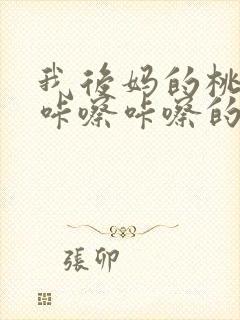 我后妈的桃
咔嚓咔嚓的
張卯